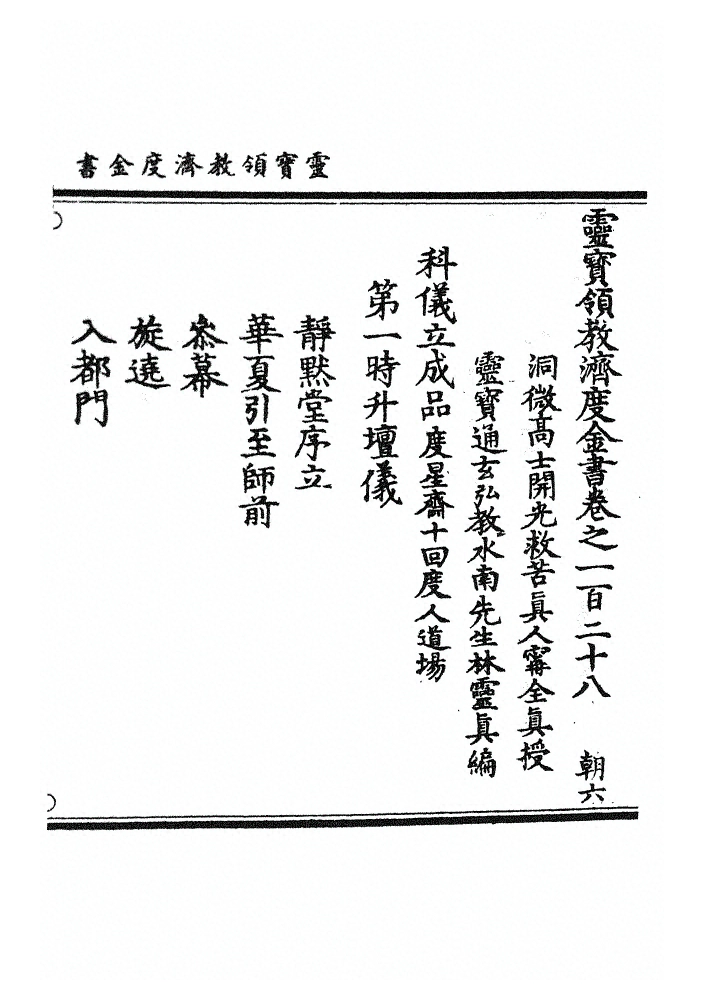 靈寶領教濟度金書
靈寶領教濟度金書卷之一百二十八　朝六
洞微高士開光救苦眞人甯全眞授
靈寶通玄弘教水南先生林靈眞編
科儀立成品度星齋十回度人道場
第一時升壇儀
靜默堂序立
華夏引至師前
叅幕
旋遶
入都門